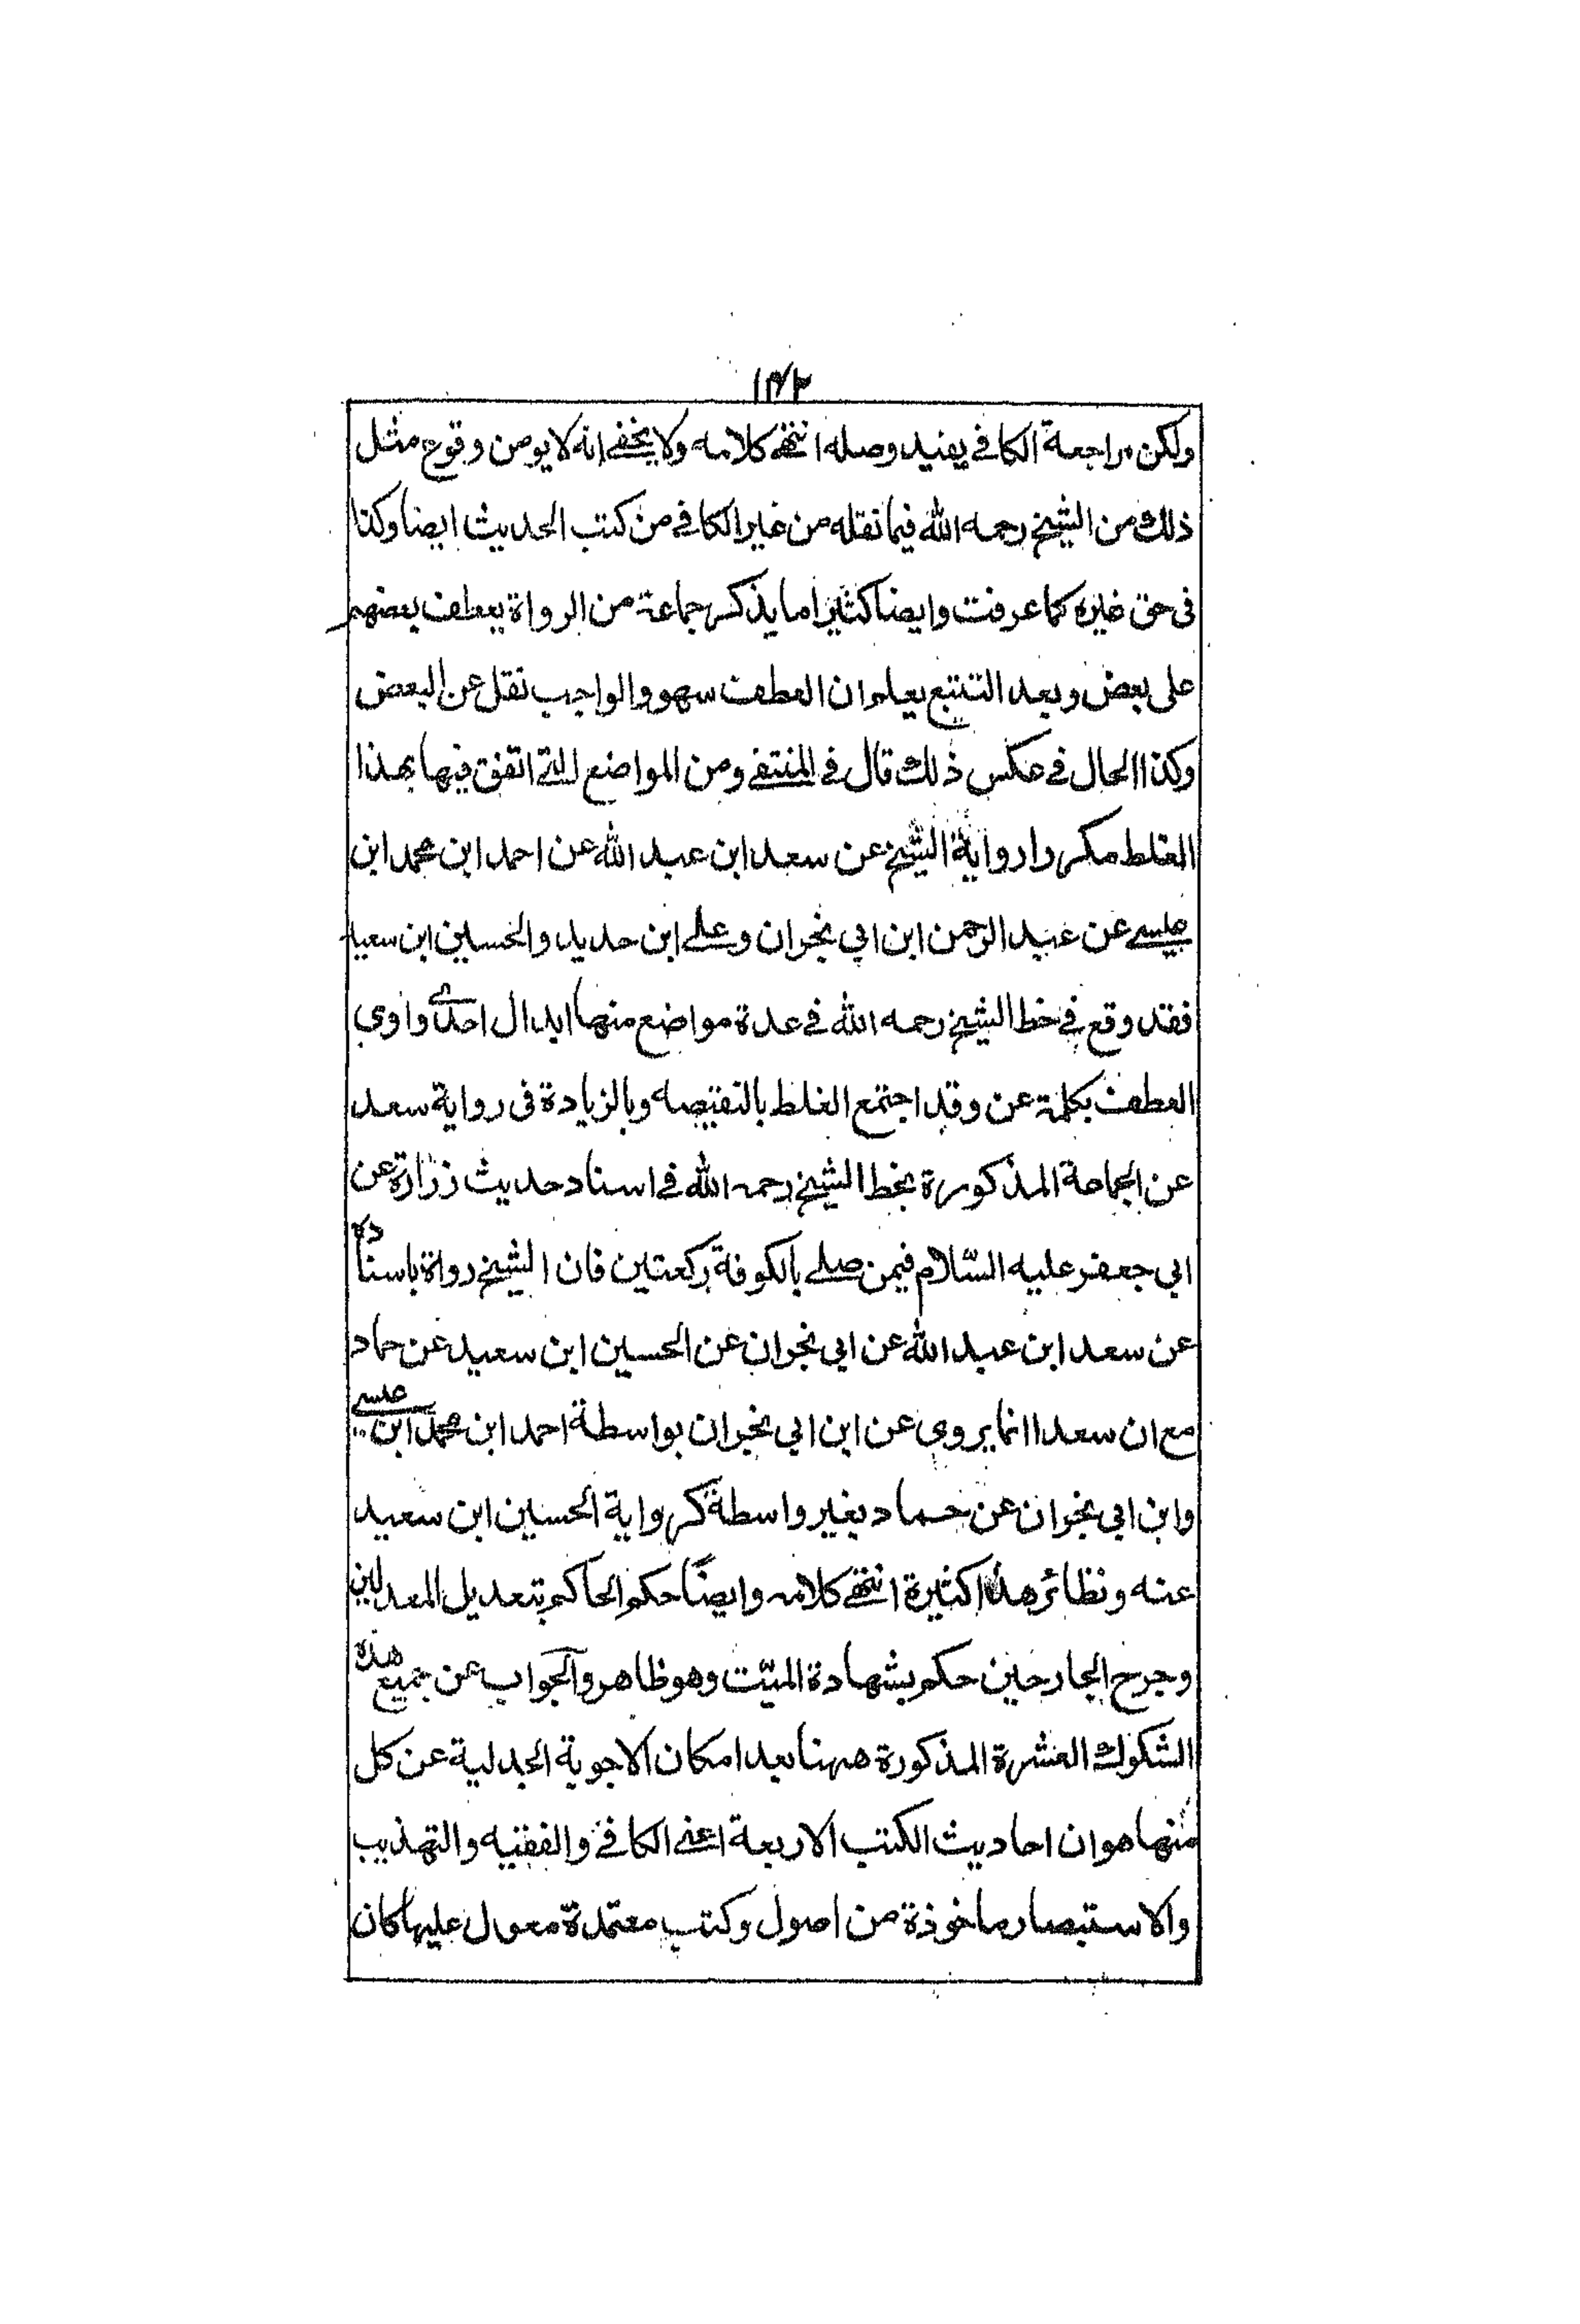 ۱۴۲
ولكن مراجعة الكافي يفيد وصله انتهى كلامه ولا يخفى انه لا يومن وقوع مثل
ذلك من الشيخ رحمه الله فيما نقله من غير الكافي من كتب الحديث ايضا وكذا
في حق غيره كما عرفت وايضا كثيرا ما يذكر جماعة من الرواة يعطف بعضهم
على بعض وبعد التتبع يعلم ان العطف سهو والواجب نقل عن البعض
وكذا الحال في عكس ذلك قال في المنتقى ومن المواضع التي اتفق فيها بهذا
الغلط مكررا رواية الشيخ عن سعد ابن عبد الله عن احمد ابن محمد ابن
عيسى عن عبد الرحمن ابن ابي نجران وعلى ابن حديد والحسين ابن سعيد
فقد وقع في خط الشيخ رحمه الله في عدة مواضع منها ابدال احدى واوي
العطف بكلمة عن وقد اجتمع الغلط بالنقيصه وبالزيادة في رواية سعد
عن الجماعة المذكورة بخط الشيخ رحمه الله في اسناد حديث زرارة عن
ابي جعفر عليه السّلام فيمن صلى بالكوفة ركعتين فان الشيخ رواة باسناده
عن سعد ابن عبد الله عن ابي نجران عن الحسين ابن سعيد عن حماد
مع ان سعدا انما يروي عن ابن ابي نجران بواسطة احمد ابن محمد ابن عيسى
وابن ابي نجران عن حماد بغير واسطة كرواية الحسين ابن سعيد
عنه ونظائر هذا كثيرة انتهى كلامه وايضًا حكم الحاكم بتعديل المعدلين
وجرح الجارحين حكم بشهادة الميّت وهو ظاهر والجواب عن جميع هذه
الشكوك العشرة المذكورة ههنا بعد امكان الاجوبة الجدلية عن كل
منها هو ان احاديث الكتب الاربعة اعني الكافي والفقيه والتهذيب
والاستبصار ماخوذة من اصول وكتب معتمدة معول عليها كان